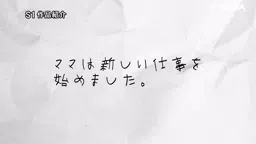 S1 作品紹介
ママは新しい仕事を
始めました。